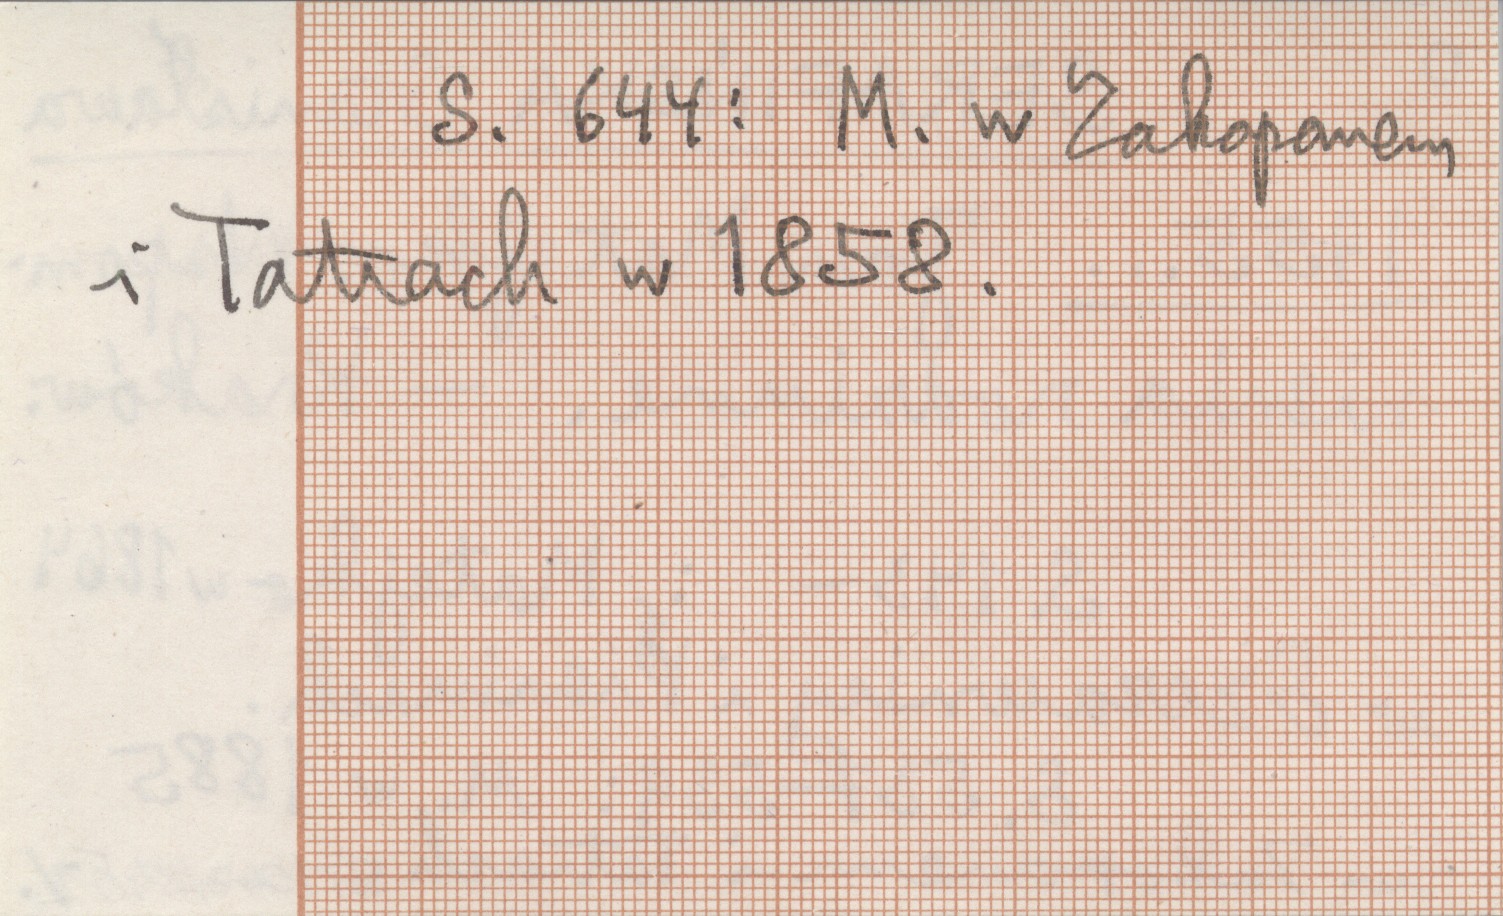 S. 644: M. w Zakopanem
i Tatrach w 1858.